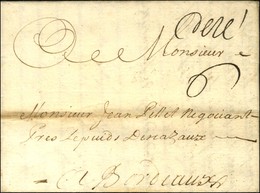 De Re!
A Monsieur
6
Monsieur Jean Pellet Negotiant
Tres le puids De Cazaux
A Bordeaux